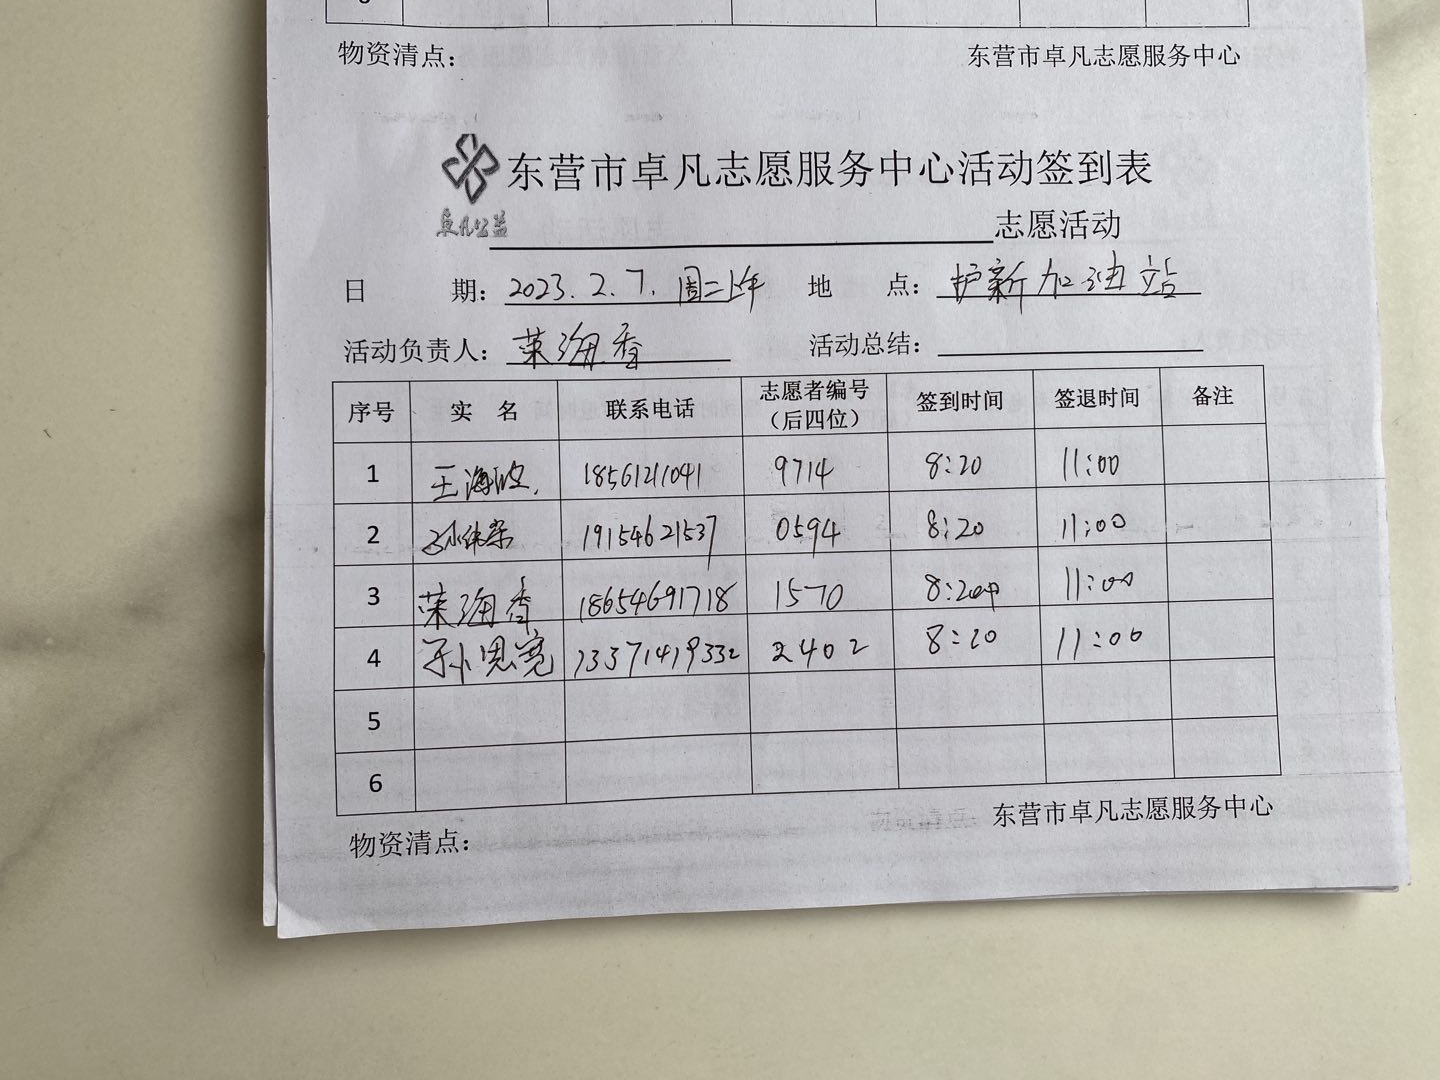 物资清点： 东营市卓凡志愿服务中心
东营市卓凡志愿服务中心活动签到表
卓凡公益 志愿活动
日 期：2023.2.7.周二上午 地 点：护新加油站
活动负责人：菜海香 活动总结：
序号 实 名 联系电话 志愿者编号（后四位） 签到时间 签退时间 备注
1 王海波 18561211041 9714 8:20 11:00
2 孙伟荣 19154621537 0594 8:20 11:00
3 菜海香 18654691718 1570 8:20 11:00
4 孙思宽 13371419332 2402 8:20 11:00
5
6
物资清点： 东营市卓凡志愿服务中心